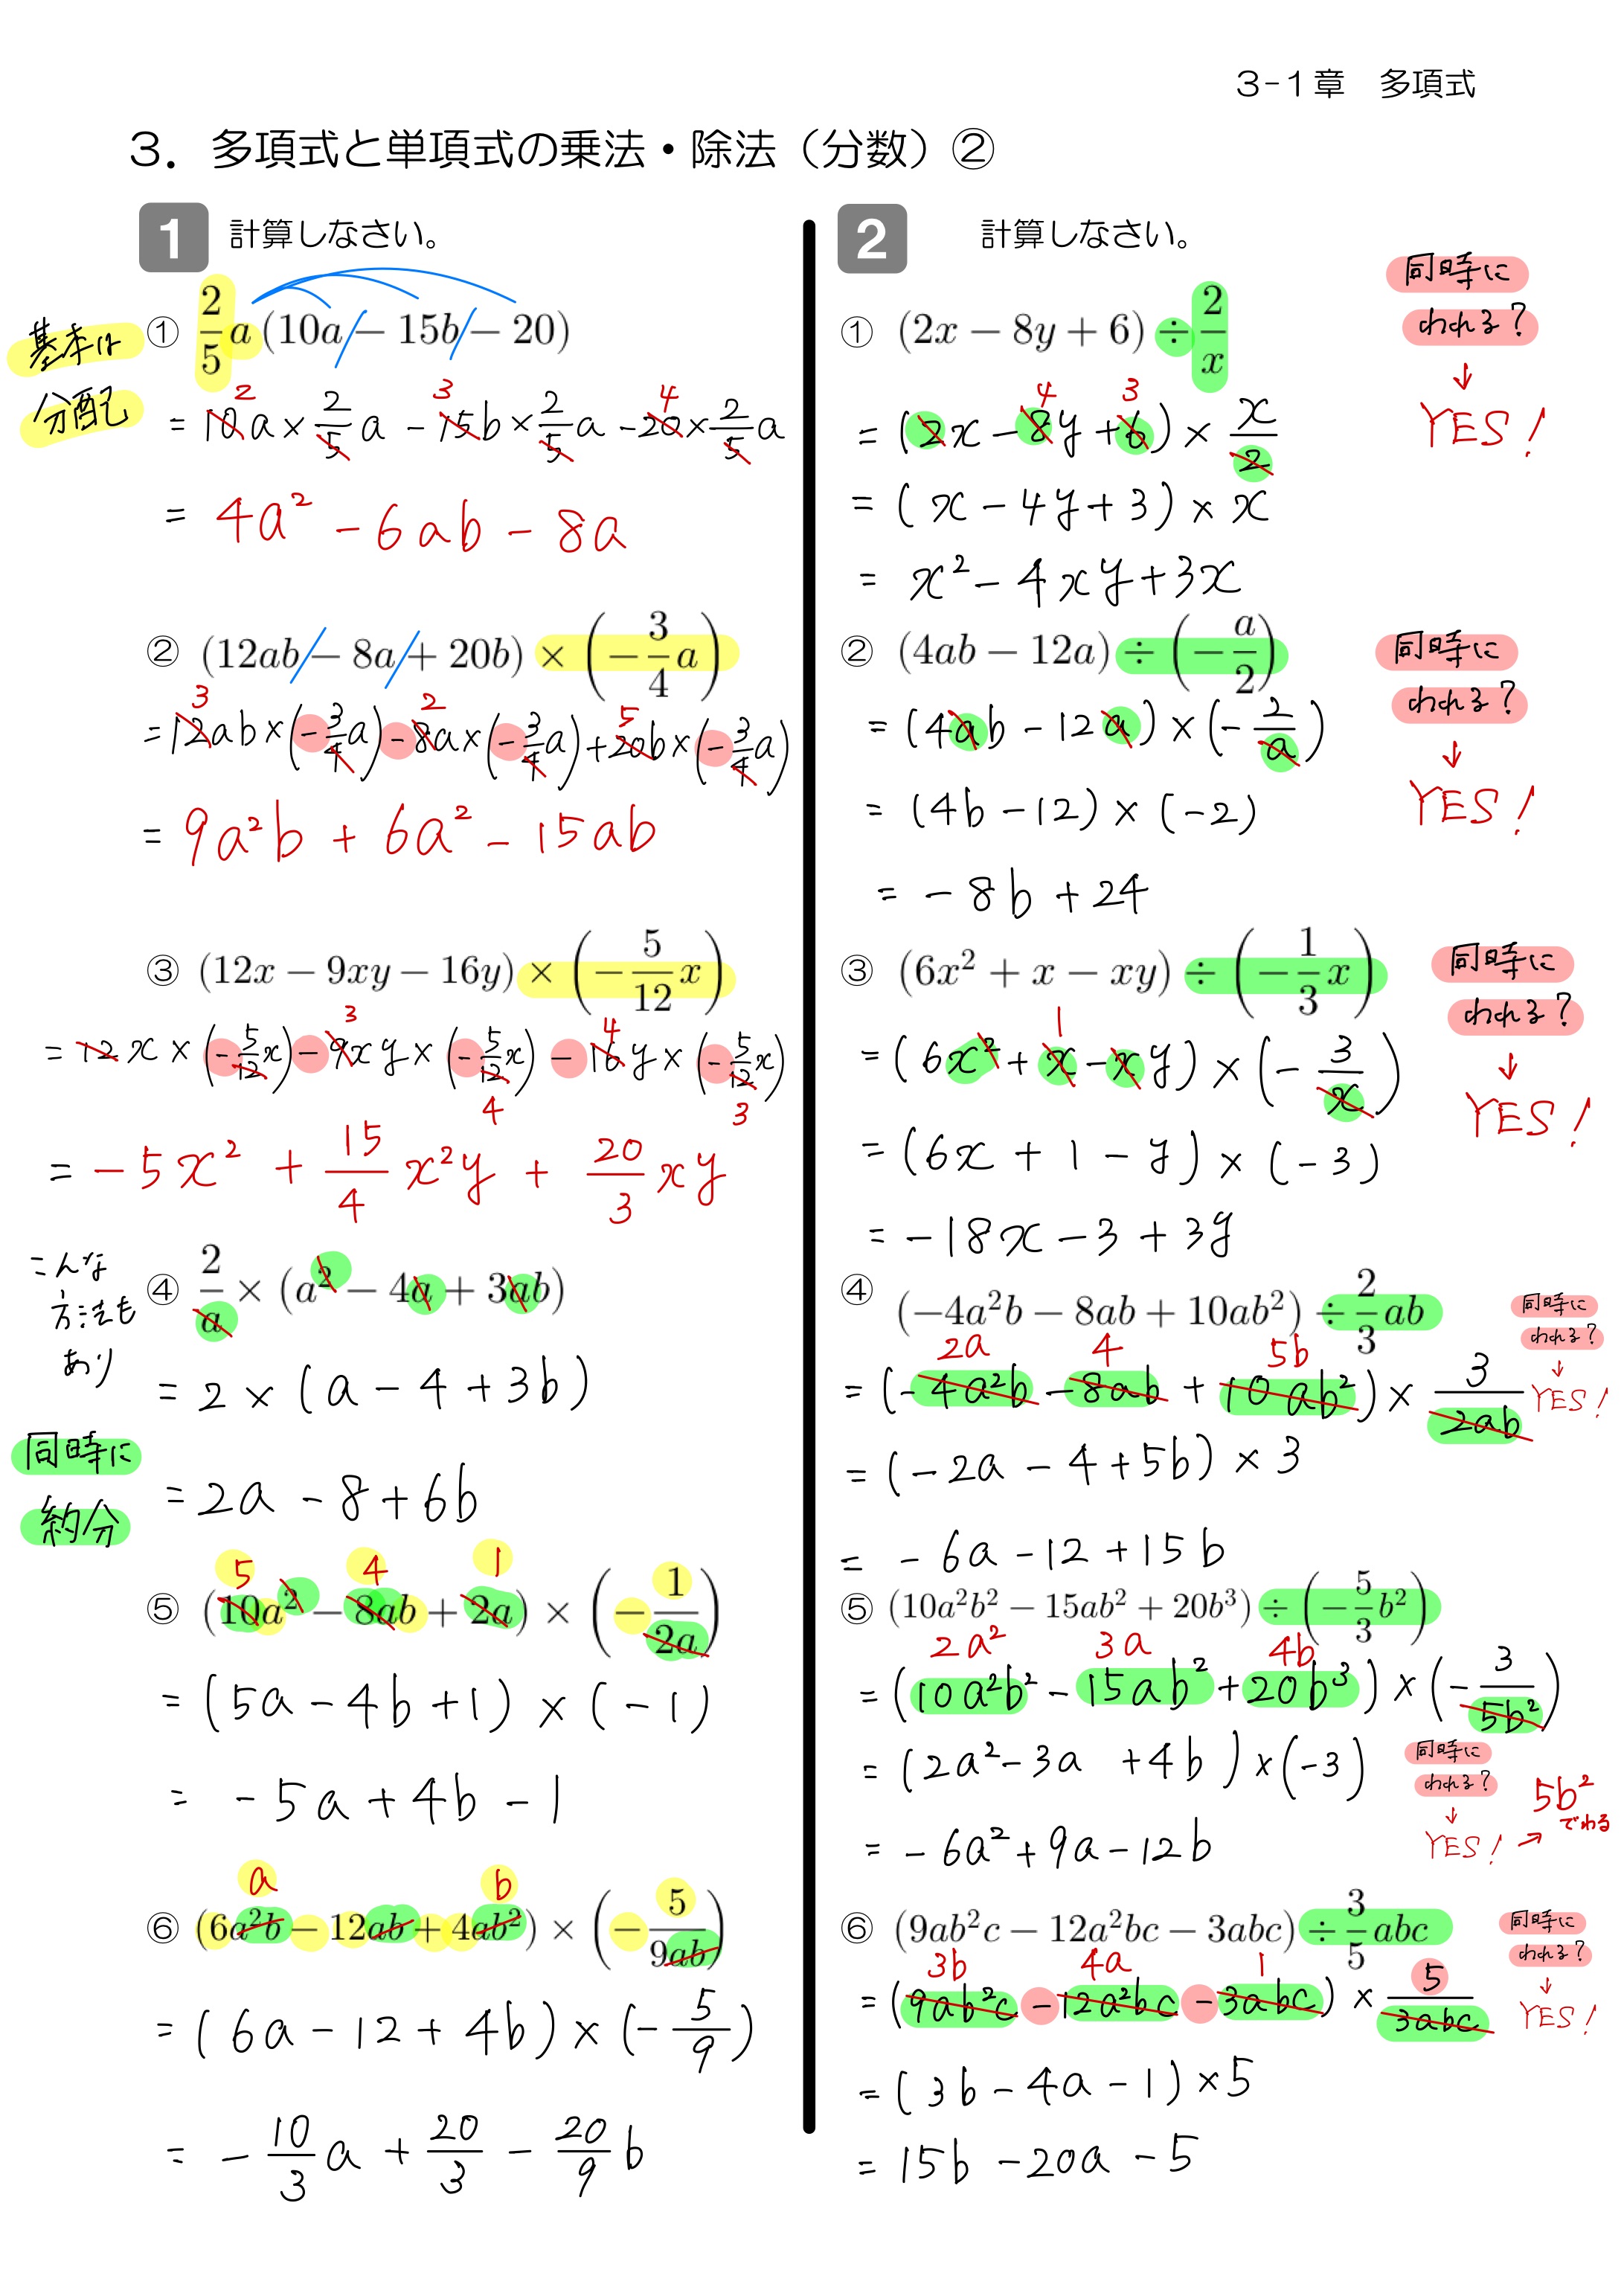 3-1章　多項式
3．多項式と単項式の乗法・除法（分数）②
1　計算しなさい。
基本は
分配
① 2/5 a (10a − 15b − 20)
2 3 4
= 10a × 2/5 a − 15b × 2/5 a − 20 × 2/5 a
= 4a² − 6ab − 8a
② (12ab − 8a + 20b) × (−3/4 a)
3 2 5
= 12ab × (−3/4 a) − 8a × (−3/4 a) + 20b × (−3/4 a)
= 9a²b + 6a² − 15ab
③ (12x − 9xy − 16y) × (−5/12 x)
3 4
= 12x × (−5/12 x) − 9xy × (−5/12 x) − 16y × (−5/12 x)
4 3
= −5x² + 15/4 x²y + 20/3 xy
こんな
方法も
あり
④ 2/a × (a² − 4a + 3ab)
= 2 × (a − 4 + 3b)
同時に
約分
= 2a − 8 + 6b
5 4 1
⑤ (10a² − 8ab + 2a) × (−1/2a)
= (5a − 4b + 1) × (−1)
= −5a + 4b − 1
a b
⑥ (6a²b − 12ab + 4ab²) × (−5/9ab)
= (6a − 12 + 4b) × (−5/9)
= −10/3 a + 20/3 − 20/9 b
2　計算しなさい。
① (2x − 8y + 6) ÷ 2/x
同時に
われる?
↓
YES!
4 3
= (2x − 8y + 6) × x/2
= (x − 4y + 3) × x
= x² − 4xy + 3x
② (4ab − 12a) ÷ (−a/2)
同時に
われる?
↓
YES!
= (4ab − 12a) × (−2/a)
= (4b − 12) × (−2)
= −8b + 24
③ (6x² + x − xy) ÷ (−1/3 x)
同時に
われる?
↓
YES!
1
= (6x² + x − xy) × (−3/x)
= (6x + 1 − y) × (−3)
= −18x − 3 + 3y
④ (−4a²b − 8ab + 10ab²) ÷ 2/3 ab
同時に
われる?
↓
YES!
2a 4 5b
= (−4a²b − 8ab + 10ab²) × 3/2ab
= (−2a − 4 + 5b) × 3
= −6a − 12 + 15b
⑤ (10a²b² − 15ab² + 20b³) ÷ (−5/3 b²)
2a² 3a 4b
= (10a²b² − 15ab² + 20b³) × (−3/5b²)
= (2a² − 3a + 4b) × (−3)
同時に
われる?
↓
YES! → 5b²
でわる
= −6a² + 9a − 12b
⑥ (9ab²c − 12a²bc − 3abc) ÷ 3/5 abc
同時に
われる?
↓
YES!
3b 4a 1
= (9ab²c − 12a²bc − 3abc) × 5/3abc
= (3b − 4a − 1) × 5
= 15b − 20a − 5